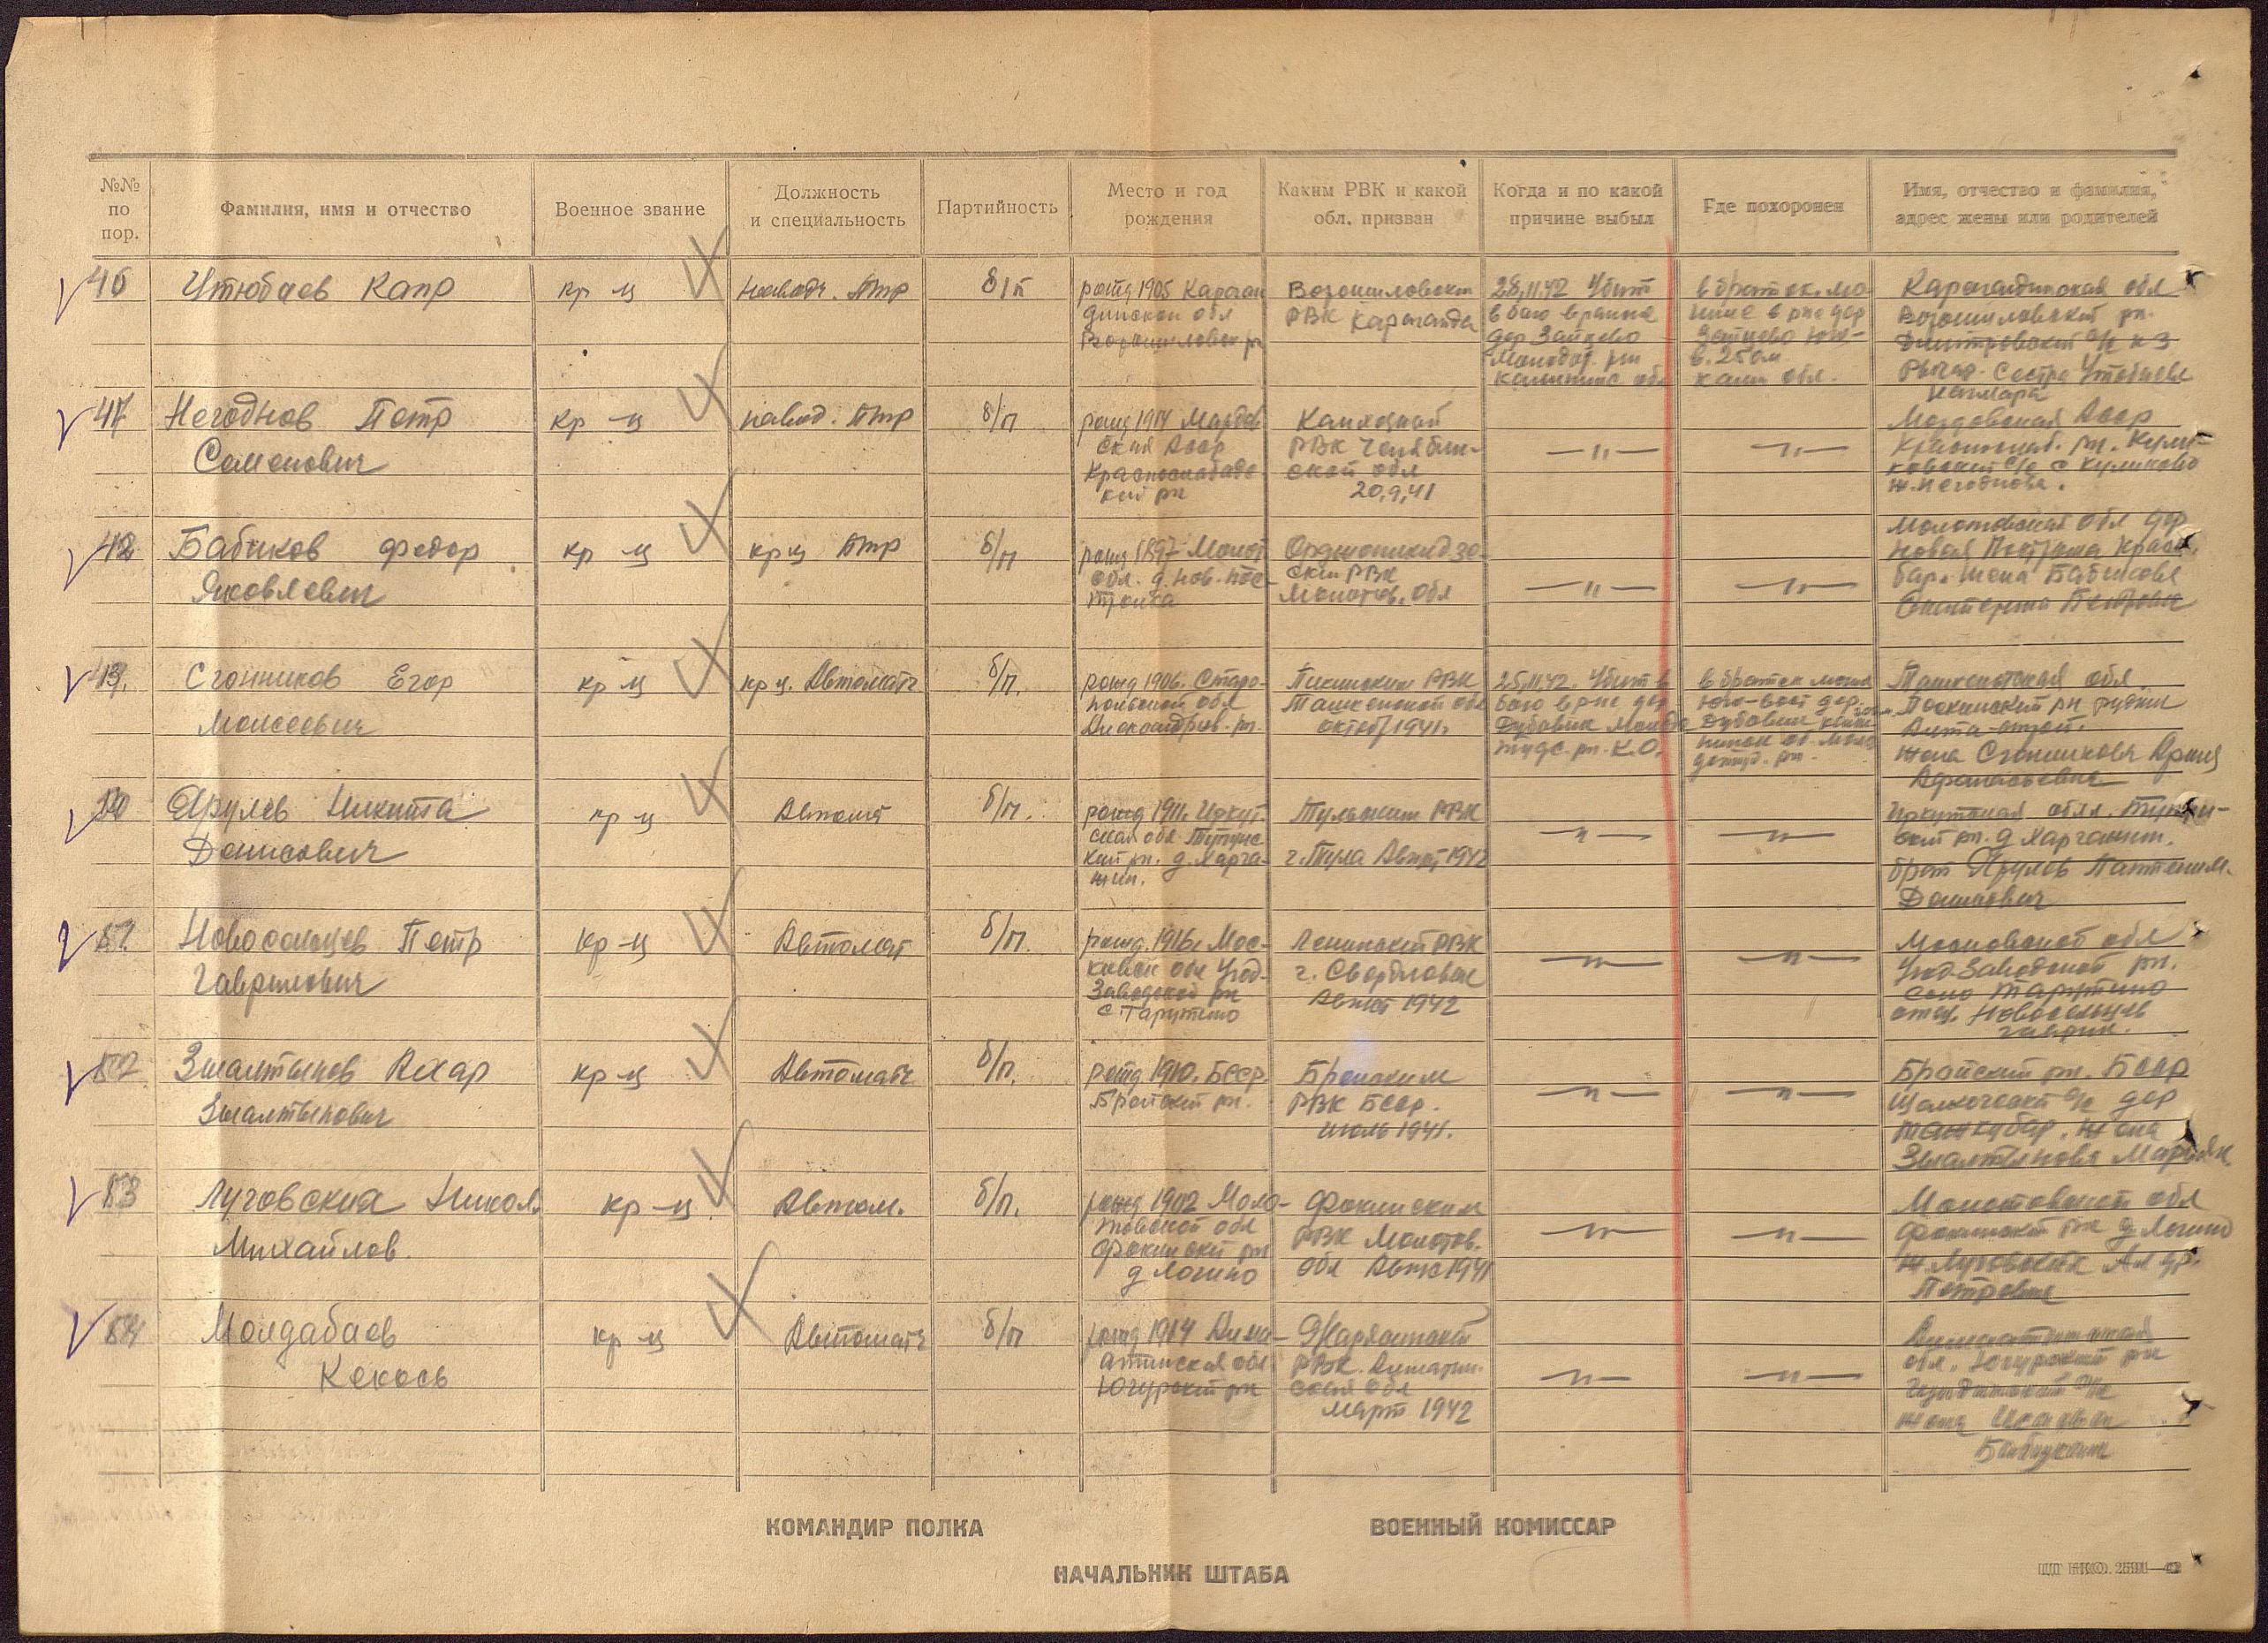 №№ по пор.
Фамилия, имя и отчество
Военное звание
Должность и специальность
Партийность
Место и год рождения
Каким РВК и какой обл. призван
Когда и по какой причине выбыл
Где похоронен
Имя, отчество и фамилия, адрес жены или родителей
46 Утюбаев Капр кр-ц наводч. Птр б/п
рожд 1905 Караган
динской обл
Ворошиловск рн
Ворошиловским
РВК Караганда
28.11.42 Убит
в бою в районе
дер Зайцево
Молодот. рн
Калининс обл
в братск. мо-
гиле в рне дер
Зайцево юго-
в. 250 м
Калин обл.
Карагандинская обл
Ворошиловский рн.
Дмитровский с/с к 3
Сестра Утюбаева
47 Негоднов Петр кр-ц навод. Птр б/п
Семенович
рожд 1914 Мордов
ская Асср
Краснослободс
кий рн
РВК Челябин-
ской обл
20.9.41
—"— —"—
Мордовская Асср
Краснослоб. рн. Кули-
ковский с/с с Куликово
ж. Негоднова.
48 Бабиков Федор кр-ц кр-ц Птр б/п
Яковлевич
рожд 1897 Молот
обл. д. Нов. Пос-
тройка
Орджоникидзе-
ским РВК
Молотов. обл
—"— —"—
Молотовская обл дер
Новая Постройка Красн.
бар. Жена Бабикова
Екатерина Петровна
49. Сгонников Егор кр-ц кр-ц. Автоматч б/п.
Моисеевич
рожд 1906. Ставро-
польской обл
Александров. рн.
РВК
Ташкенской обл
октяб 1941.
25.11.42. Убит в
бою в рне дер
Дубовик Молодо
тудс. рн. К.О.
в братск могил
юго-вост дер.
Дубовик Кали-
нинск об. Моло
дотуд. рн.
Ташкентская обл
рн рудник
Жена Сгонникова Арина
Афанасьевна
50 Ярулев Никита кр-ц Автомат б/п.
Денисович
рожд 1911. Иркут
ская обл
кий рн. д. Харга-
жин.
Тульским РВК
г. Тула Август 1942
—"— —"—
Иркутская обл.
ский рн. д Харгажин.
брат Ярулев
Денисович
51 Новосельцев Петр кр-ц Автомат б/п.
Гаврилович
рожд. 1916. Мос-
ковск обл Угод-
Заводской рн
с. Тарутино
Ленинский РВК
г. Свердловск
Август 1942
—"— —"—
Московской обл
Угод-Заводской рн.
село Тарутино
отец. Новосельцев
Гаврил.
52 Змалтынов Ахар кр-ц Автоматч б/п.
Змалтынович
рожд 1910. Бсср.
рн.
РВК Бсср.
июль 1941.
—"— —"—
рн. Бсср
с/с дер
Жена
Змалтынова
53 Луговских Никол. кр-ц Автом. б/п.
Михайлов.
рожд 1902 Моло-
товской обл
Фокинский рн
д Логино
Фокинским
РВК Молотов.
обл Август 1941
—"— —"—
Молотовской обл
Фокинский рн д Логино
ж. Луговских Ал др.
Петровна
54 Молдабаев кр-ц Автоматч б/п
Кекось
рожд 1914 Алма-
Атинская обл
рн
РВК. Алматин-
ской обл
март 1942
—"— —"—
Алмаатинская
обл. рн
с/с
жена
КОМАНДИР ПОЛКА ВОЕННЫЙ КОМИССАР
НАЧАЛЬНИК ШТАБА